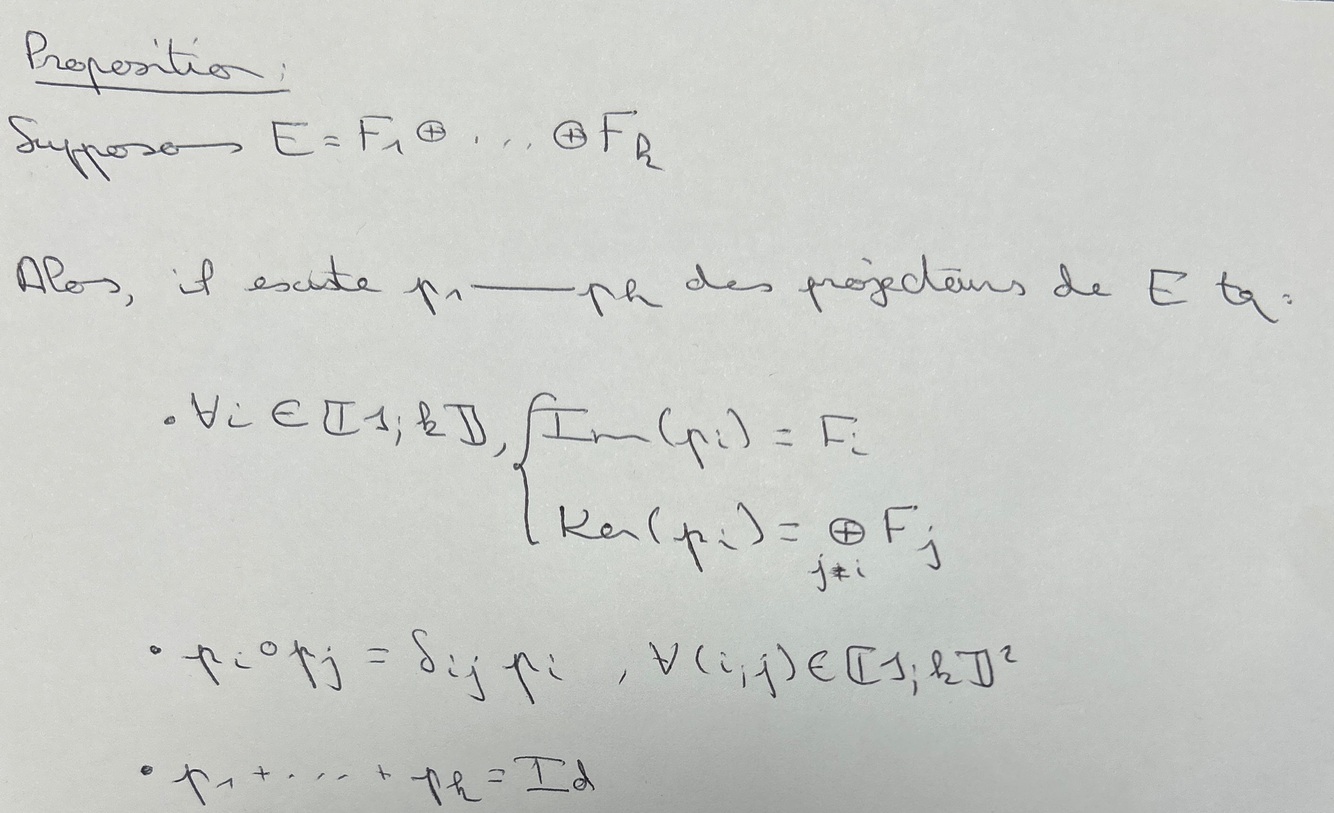 Proposition:
Supposons E = F₁ ⊕ ... ⊕ Fₖ
Alors, il existe p₁ — pₖ des projecteurs de E tq:
• ∀i ∈ ⟦1; k⟧, { Im(pᵢ) = Fᵢ
Ker(pᵢ) = ⊕ Fⱼ
j≠i
• pᵢ∘pⱼ = δᵢⱼ pᵢ , ∀(i,j) ∈ ⟦1; k⟧²
• p₁ + ... + pₖ = Id